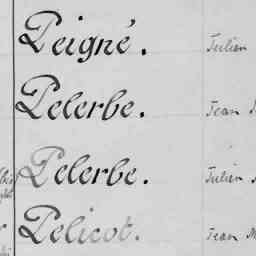 Peigné. Julien
Pelerbe. Jean
Pelerbe. Julien
Pelicot. Jean M